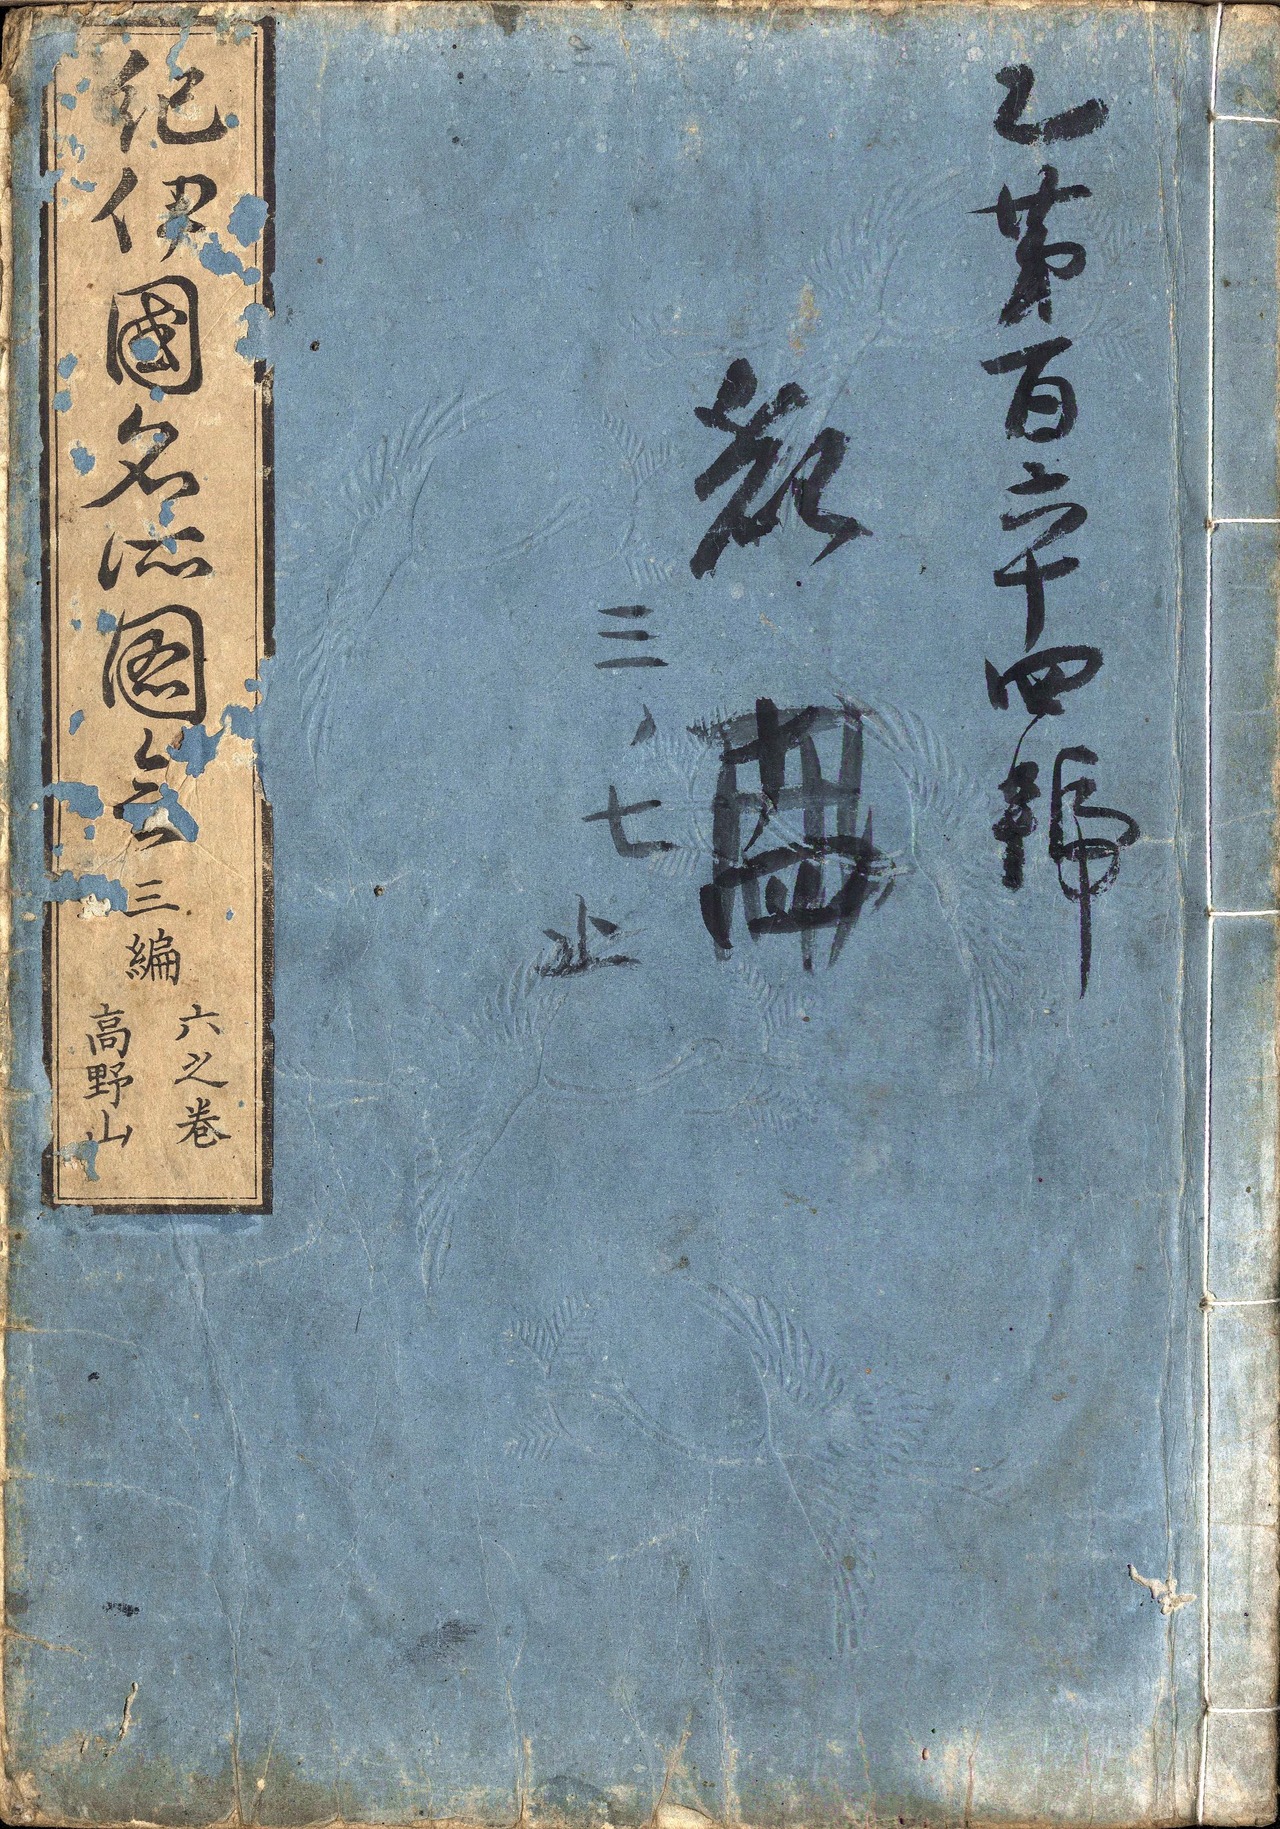 乙第百六十四號
三ノ七
止
紀伊國名所圖会三編
六之巻
高野山